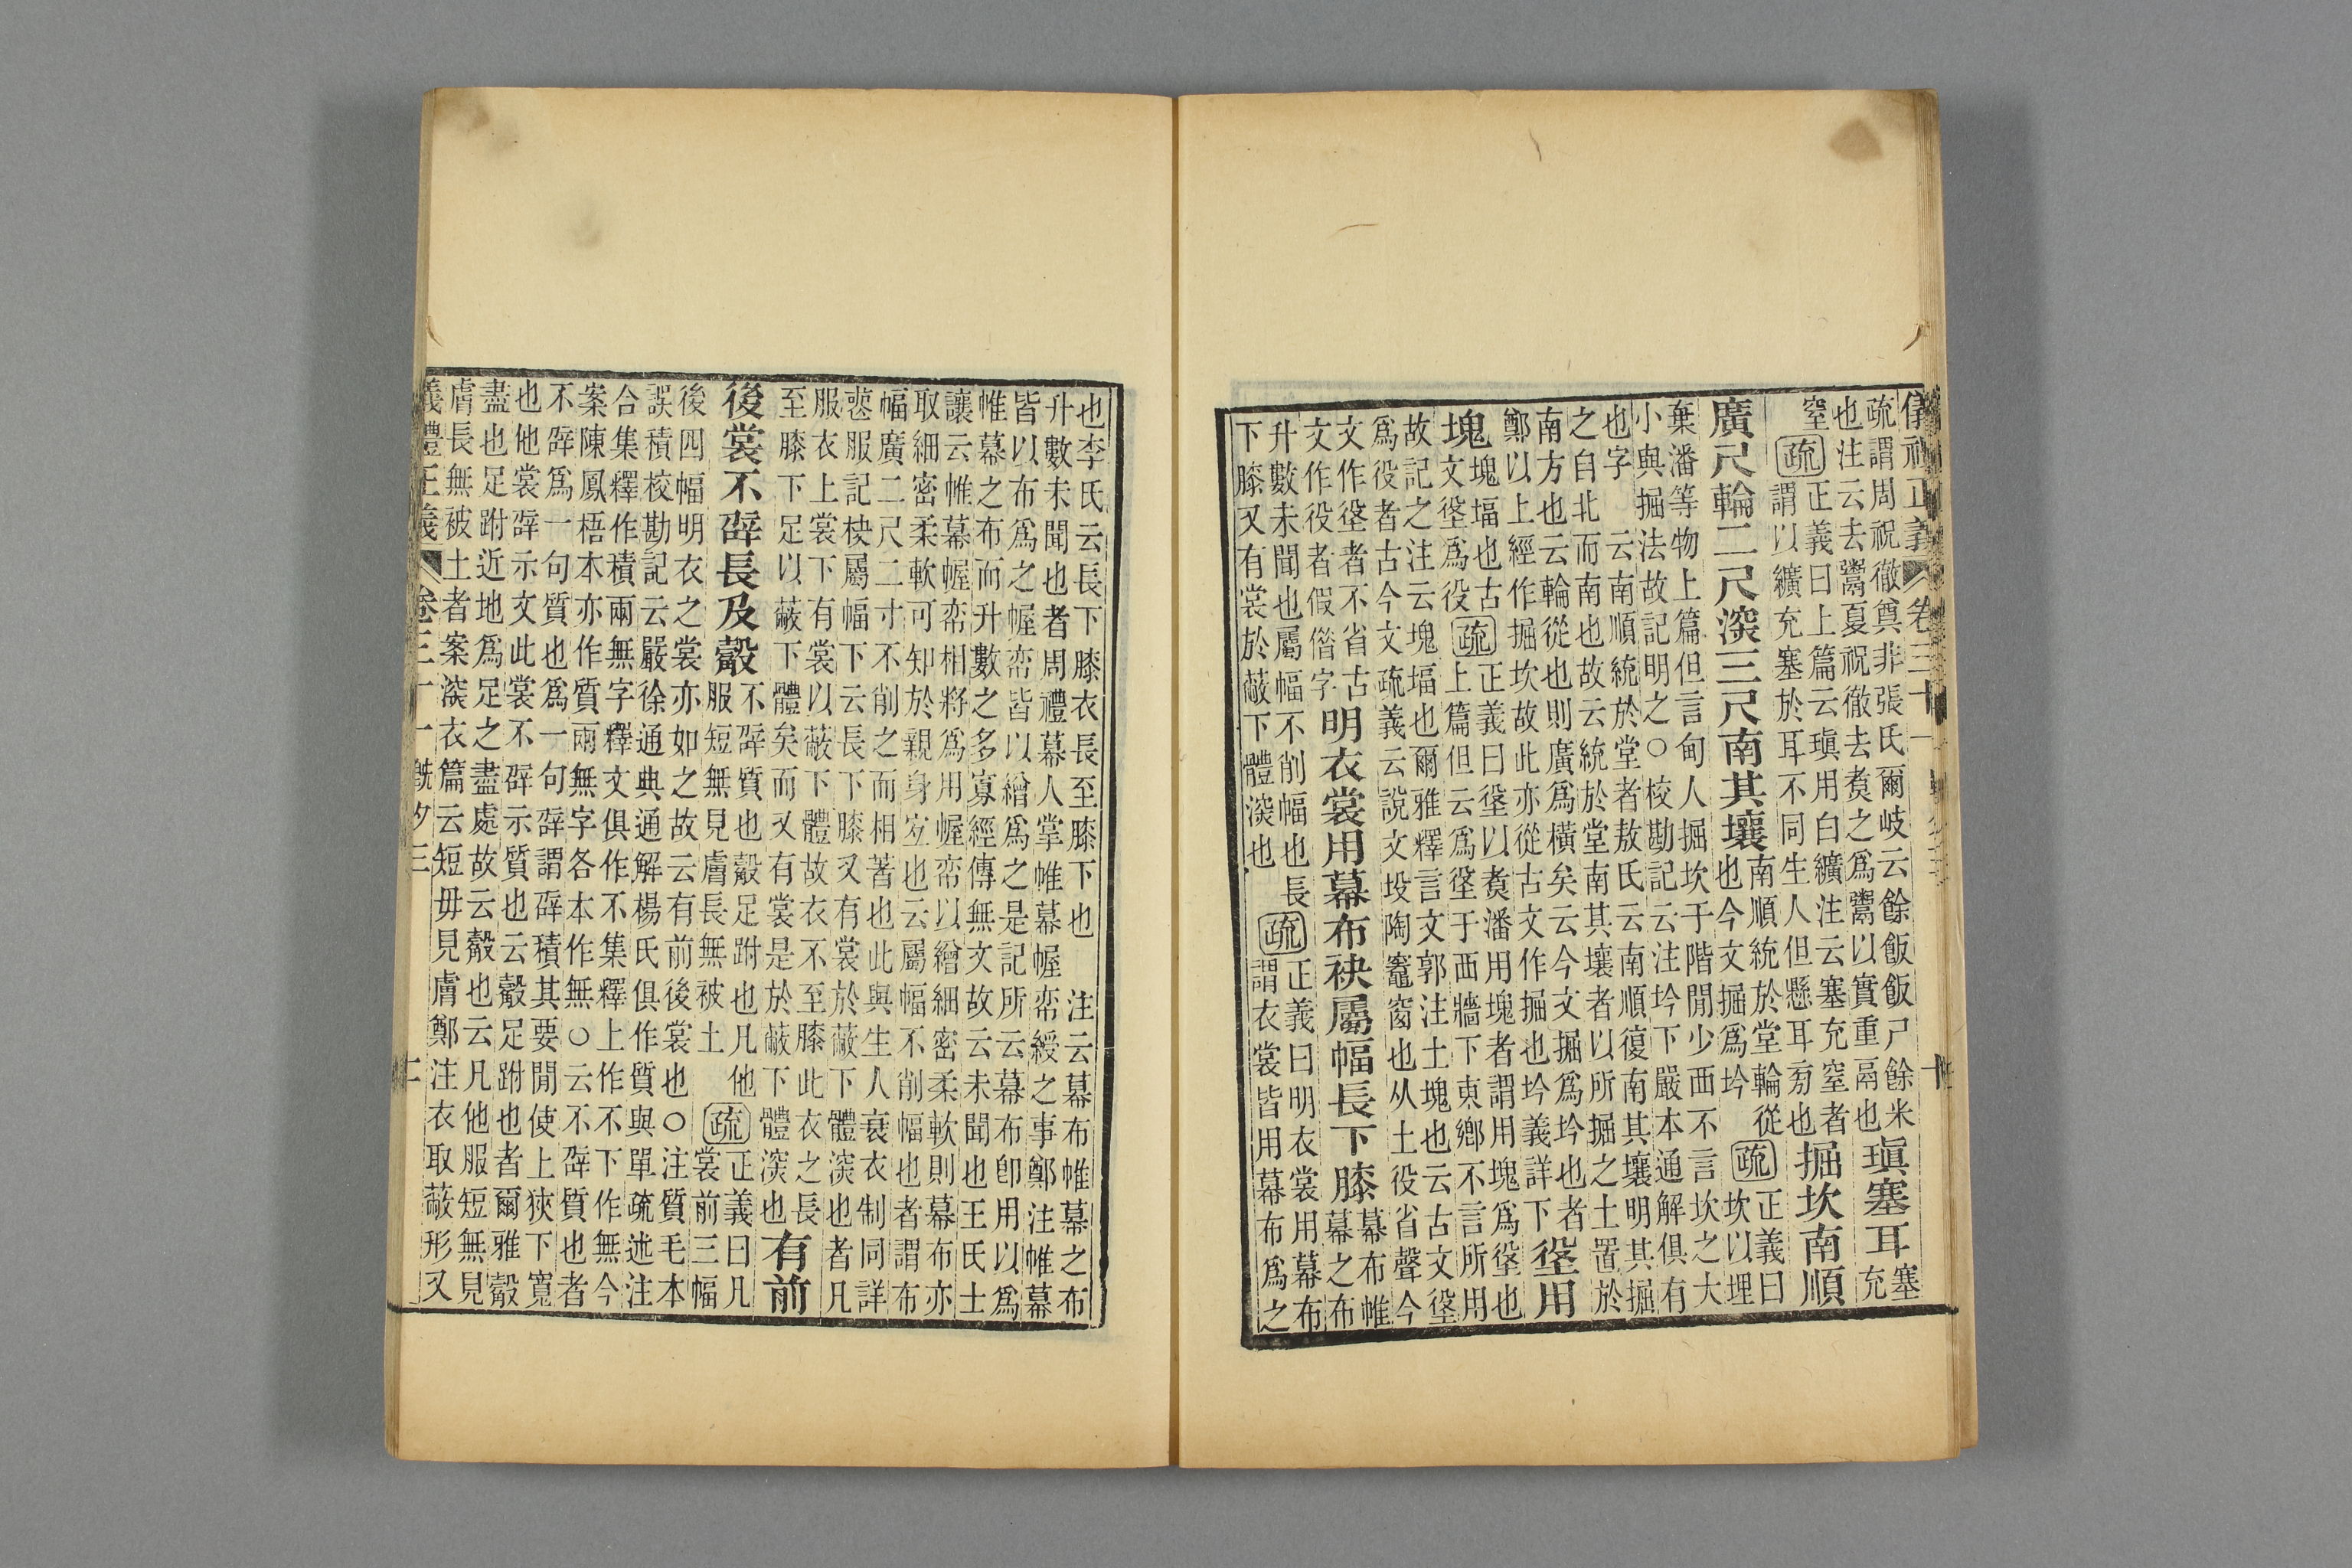 儀禮正義 卷三十一
疏謂周祝徹奠非張氏爾岐云餘飯飯尸餘米
也注云去鬻夏祝徹去煑之爲鬻以實重鬲也
瑱塞耳塞充
窒疏正義曰上篇云瑱用白纊注云塞充窒者
謂以纊充塞於耳不同生人但懸耳旁也
掘坎南順
廣尺輪二尺深三尺南其壤
南順統於堂輪從
也今文掘爲坅
疏正義曰
坎以埋
棄潘等物上篇但言甸人掘坎于階閒少西不言坎之大
小與掘法故記明之○校勘記云注坅下嚴本通解俱有
也字 云南順統於堂者敖氏云南順復南其壤明其掘
之自北而南也故云統於堂南其壤者以所掘之土置於
南方也云輪從也則廣爲橫矣云今文掘爲坅也者
鄭以上經作掘坎故此亦從古文作掘也坅義詳下
垼用
塊
塊堛也古
文垼爲役
疏正義曰垼以煑潘用塊者謂用塊爲垼也
上篇但云爲垼于西牆下東鄉不言所用
故記之注云塊堛也爾雅釋言文郭注土塊也云古文垼
爲役者古今文疏義云說文坄陶竈窗也从土役省聲今
文作垼者不省古
文作役者假借字
明衣裳用幕布袂屬幅長下膝
幕布帷
幕之布
升數未聞也屬幅不削幅也長
下膝又有裳於蔽下體深也
疏正義曰明衣裳用幕布
謂衣裳皆用幕布爲之
也李氏云長下膝衣長至膝下也 注云幕布帷幕之布
升數未聞也者周禮幕人掌帷幕幄帟綬之事鄭注帷幕
皆以布爲之幄帟皆以繒爲之是記所云幕布卽用以爲
帷幕之布而升數之多寡經傳無文故云未聞也王氏士
讓云帷幕幄帟相將爲用幄帟以繒細密柔軟則幕布亦
取細密柔軟可知於親身宐也云屬幅不削幅也者謂布
幅廣二尺二寸不削之而相著也此與生人衰衣制同詳
䘮服記袂屬幅下云長下膝又有裳於蔽下體深也者凡
服衣上裳下有裳以蔽下體故衣不至膝此衣之長
至膝下足以蔽下體矣而又有裳是於蔽下體深也
有前
後裳不辟長及觳
不辟質也觳足跗也凡他
服短無見膚長無被土
疏正義曰凡
裳前三幅
後四幅明衣之裳亦如之故云有前後裳也○注質毛本
誤積校勘記云嚴徐通典通解楊氏俱作質與單疏述注
合集釋作積兩無字釋文俱作不集釋上作不下作無今
案陳鳳梧本亦作質兩無字各本作無○云不辟質也者
不辟爲一句質也爲一句辟謂辟積其要閒使上狹下寬
也他裳辟示文此裳不辟示質也云觳足跗也者爾雅觳
盡也足跗近地爲足之盡處故云觳也云凡他服短無見
膚長無被土者案深衣篇云短毋見膚鄭注衣取蔽形又
義禮正義 卷三十一 既夕三